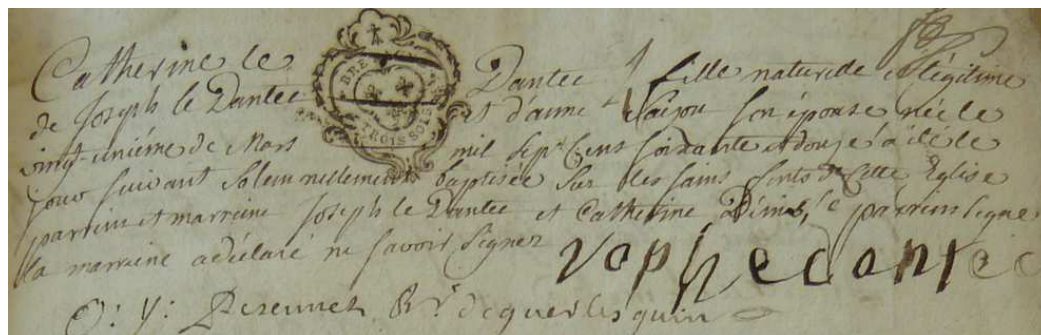 Catherine le Dantec fille naturelle et légitime
de Joseph le Dantec et d'anne Saizou son épouse née le
vingt-uniéme de Mars mil sept cens soixante et douze a été le
jour suivant solemnellement baptisée sur les saints fonts de cette Eglise
parrein et marraine Joseph le Dantec et Catherine le parrein signe
la marraine a déclaré ne savoir signer
BRE
TROIS SOLS